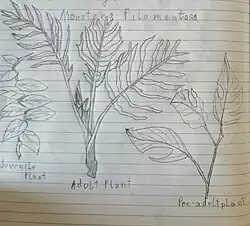 Monstera Filamentosa
Juvenile
Plant
Adult Plant
Pre-adult plant